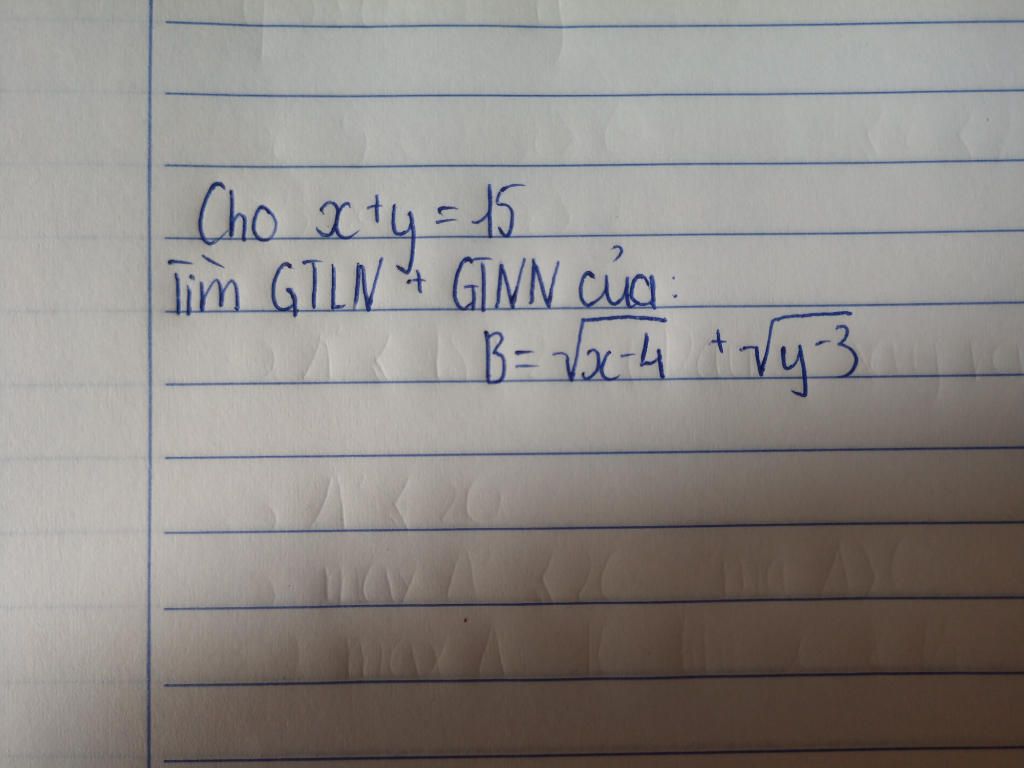 Cho x+y = 15
Tìm GTLN + GTNN của:
B = √x-4 + √y-3